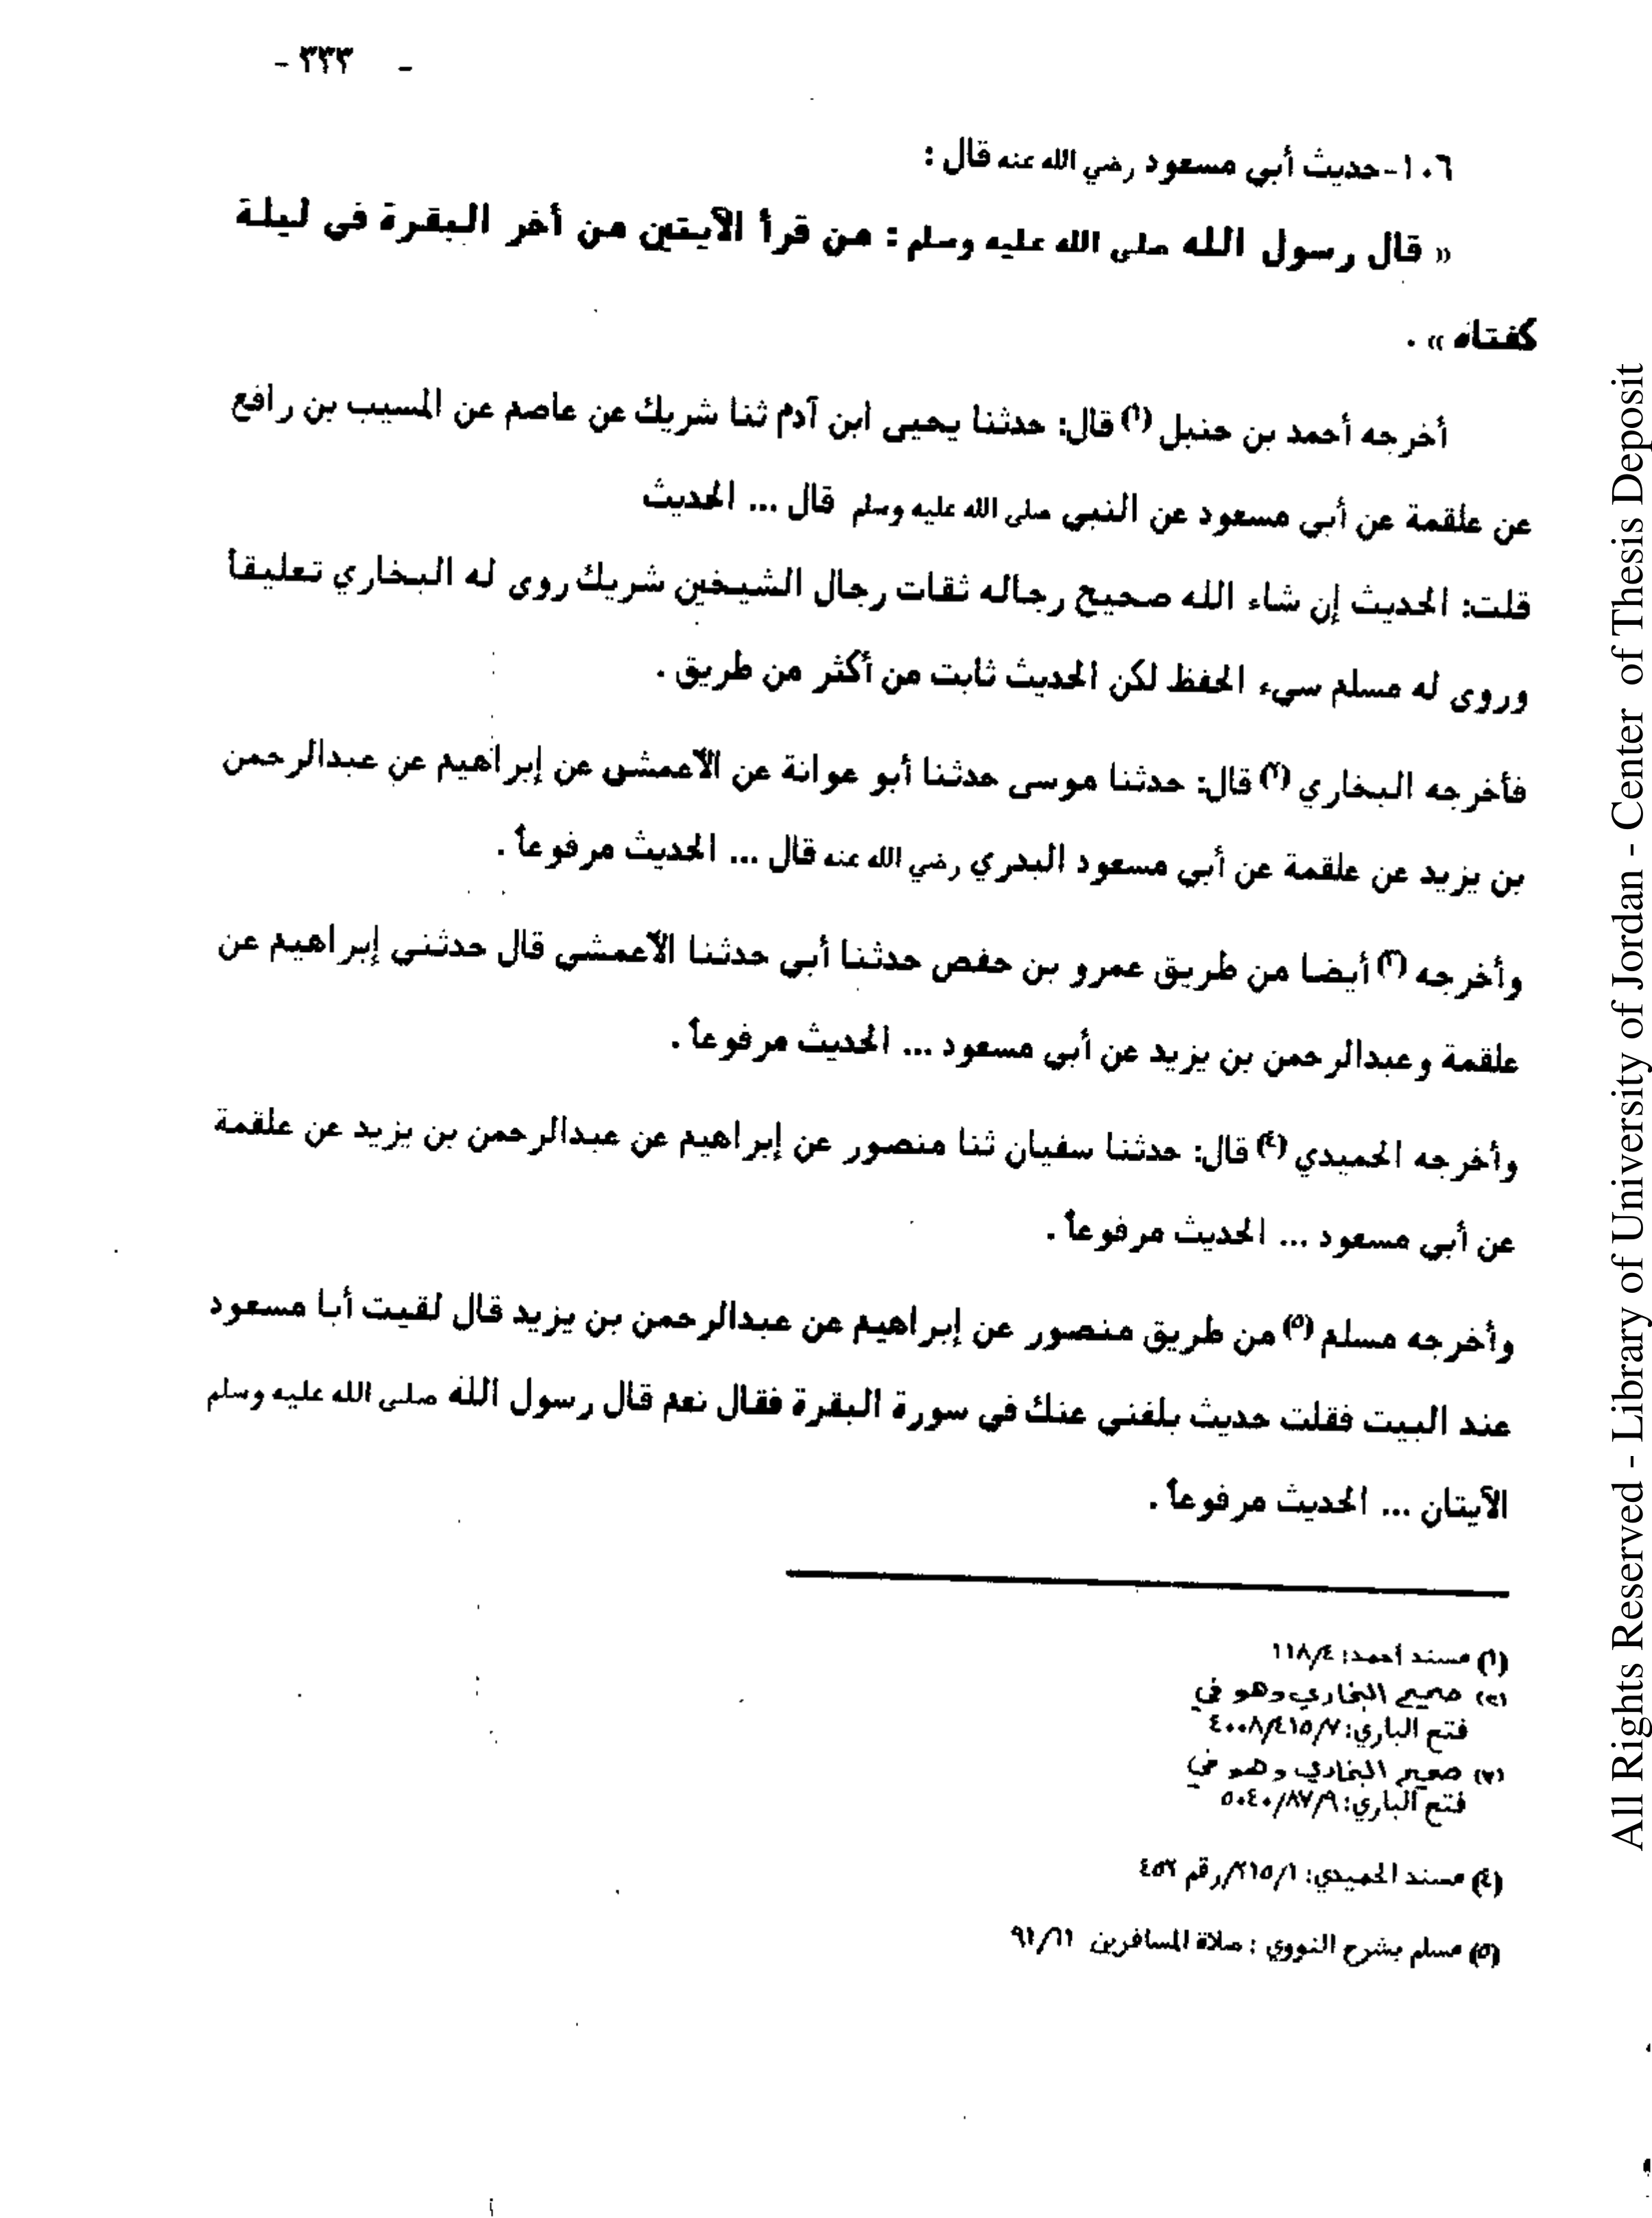 - ٣٣٣ -
١٠٦-حديث أبي مسعود رضي الله عنه قال :
« قال رسول الله صلى الله عليه وسلم : من قرأ الآيتين من أخر البقرة في ليلة
كفتاه » .
أخرجه أحمد بن حنبل (١) قال: حدثنا يحيى ابن آدم ثنا شريك عن عاصم عن المسيب بن رافع
عن علقمة عن أبي مسعود عن النبي صلى الله عليه وسلم قال ... الحديث
قلت: الحديث إن شاء الله صحيح رجاله ثقات رجال الشيخين شريك روى له البخاري تعليقاً
وروى له مسلم سيء الحفظ لكن الحديث ثابت من أكثر من طريق .
فأخرجه البخاري (٢) قال: حدثنا موسى حدثنا أبو عوانة عن الأعمش عن إبراهيم عن عبدالرحمن
بن يزيد عن علقمة عن أبي مسعود البدري رضي الله عنه قال ... الحديث مرفوعاً .
وأخرجه (٣) أيضا من طريق عمرو بن حفص حدثنا أبي حدثنا الأعمشي قال حدثني إبراهيم عن
علقمة وعبدالرحمن بن يزيد عن أبي مسعود ... الحديث مرفوعاً .
وأخرجه الحميدي (٤) قال: حدثنا سفيان ثنا منصور عن إبراهيم عن عبدالرحمن بن يزيد عن علقمة
عن أبي مسعود ... الحديث مرفوعاً .
وأخرجه مسلم (٥) من طريق منصور عن إبراهيم عن عبدالرحمن بن يزيد قال لقيت أبا مسعود
عند البيت فقلت حديث بلغني عنك في سورة البقرة فقال نعم قال رسول الله صلى الله عليه وسلم
الآيتان ... الحديث مرفوعاً .
(١) مسند أحمد: ١١٨/٤
(٢) صحيح البخاري وهو في
فتح الباري: ٤٠٠٨/٤١٥/٧
(٣) صحيح البخاري وهو في
فتح الباري: ٥٠٤٠/٨٧/٩
(٤) مسند الحميدي: ٢١٥/١/رقم ٤٥٢
(٥) مسلم بشرح النووي : صلاة المسافرين ٩١/٦١
All Rights Reserved - Library of University of Jordan - Center of Thesis Deposit